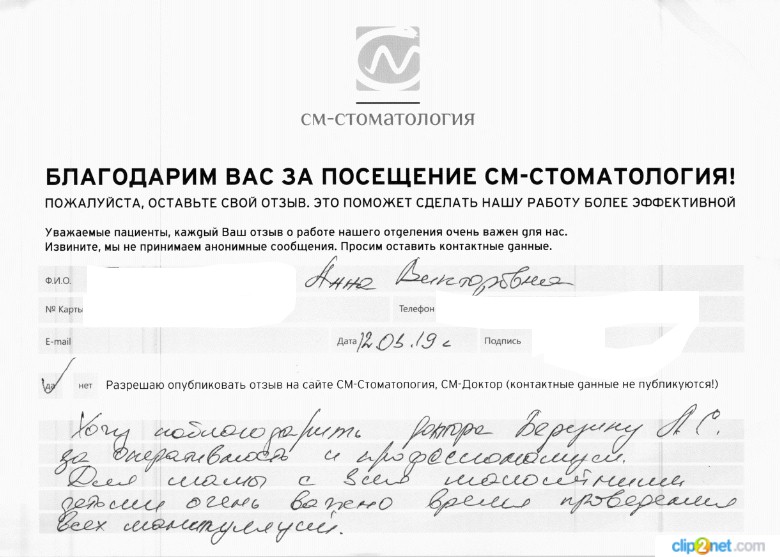 СМ-СТОМАТОЛОГИЯ
БЛАГОДАРИМ ВАС ЗА ПОСЕЩЕНИЕ СМ-СТОМАТОЛОГИЯ!
ПОЖАЛУЙСТА, ОСТАВЬТЕ СВОЙ ОТЗЫВ. ЭТО ПОМОЖЕТ СДЕЛАТЬ НАШУ РАБОТУ БОЛЕЕ ЭФФЕКТИВНОЙ
Уважаемые пациенты, каждый Ваш отзыв о работе нашего отделения очень важен для нас.
Извините, мы не принимаем анонимные сообщения. Просим оставить контактные данные.
Ф.И.О. Анна Викторовна
№ Карты Телефон
E-mail Дата Подпись
да нет Разрешаю опубликовать отзыв на сайте СМ-Стоматология, СМ-Доктор (контактные данные не публикуются!)
Хочу поблагодарить доктора Березину А.С.
за оперативность и профессионализм.
Для мамы с 3емя малолетними
детьми очень важно время проведения
всех манипуляций.
clip2net.com